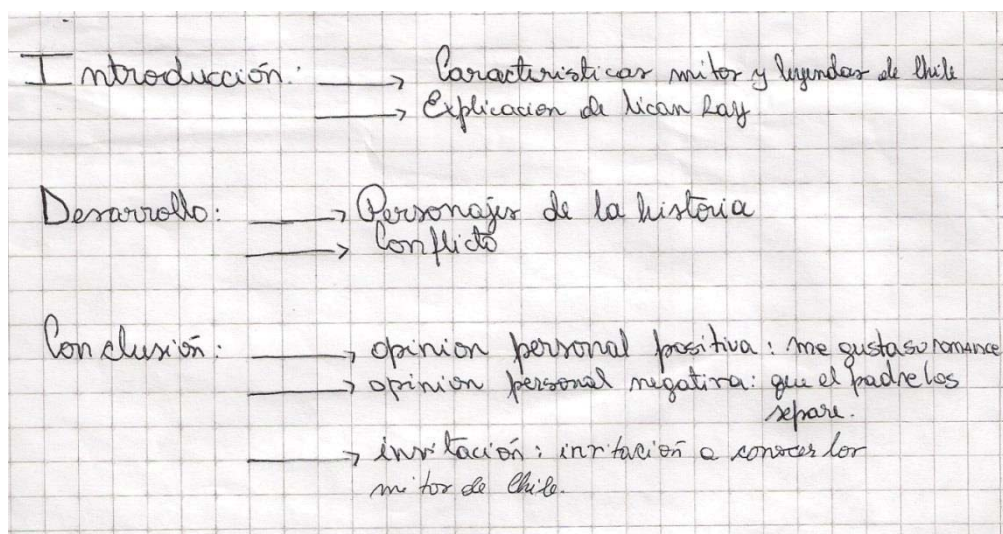 Introducción: → Caracteristicas mitos y leyendas de Chile
→ Explicacion de lican Ray
Desarrollo: → Personajes de la historia
→ Conflicto
Conclusión: → opinion personal positiva: me gusta su romance
→ opinion personal negativa: que el padre los
separe.
→ invitación: invitación a conocer los
mitos de Chile.